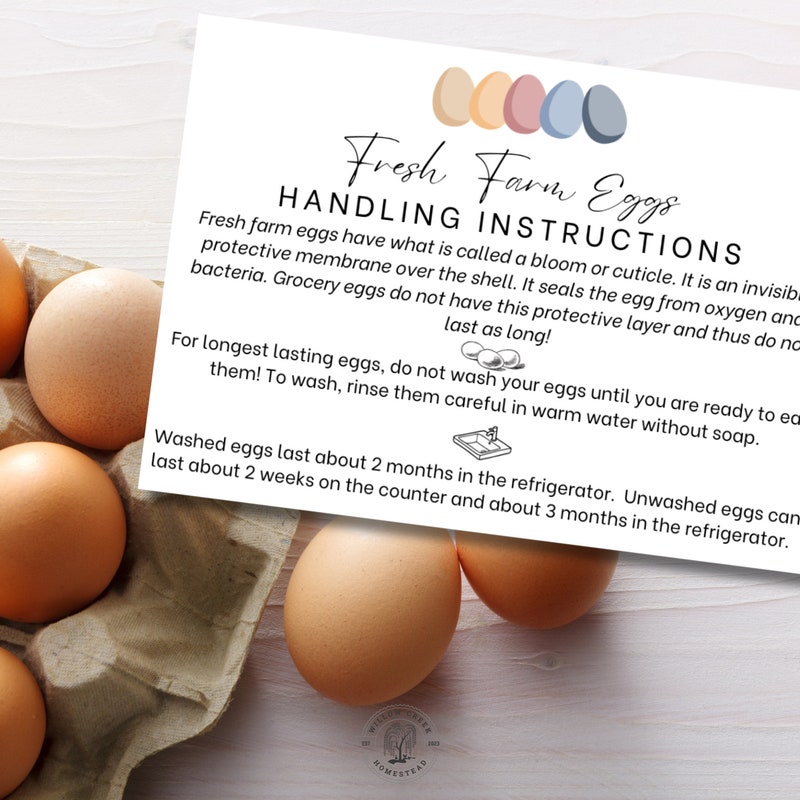 Fresh Farm Eggs
HANDLING INSTRUCTIONS
Fresh farm eggs have what is called a bloom or cuticle. It is an invisibl
protective membrane over the shell. It seals the egg from oxygen and
bacteria. Grocery eggs do not have this protective layer and thus do no
last as long!
For longest lasting eggs, do not wash your eggs until you are ready to ea
them! To wash, rinse them careful in warm water without soap.
Washed eggs last about 2 months in the refrigerator. Unwashed eggs can
last about 2 weeks on the counter and about 3 months in the refrigerator.
WILLOW CREEK
EST 2023
HOMESTEAD